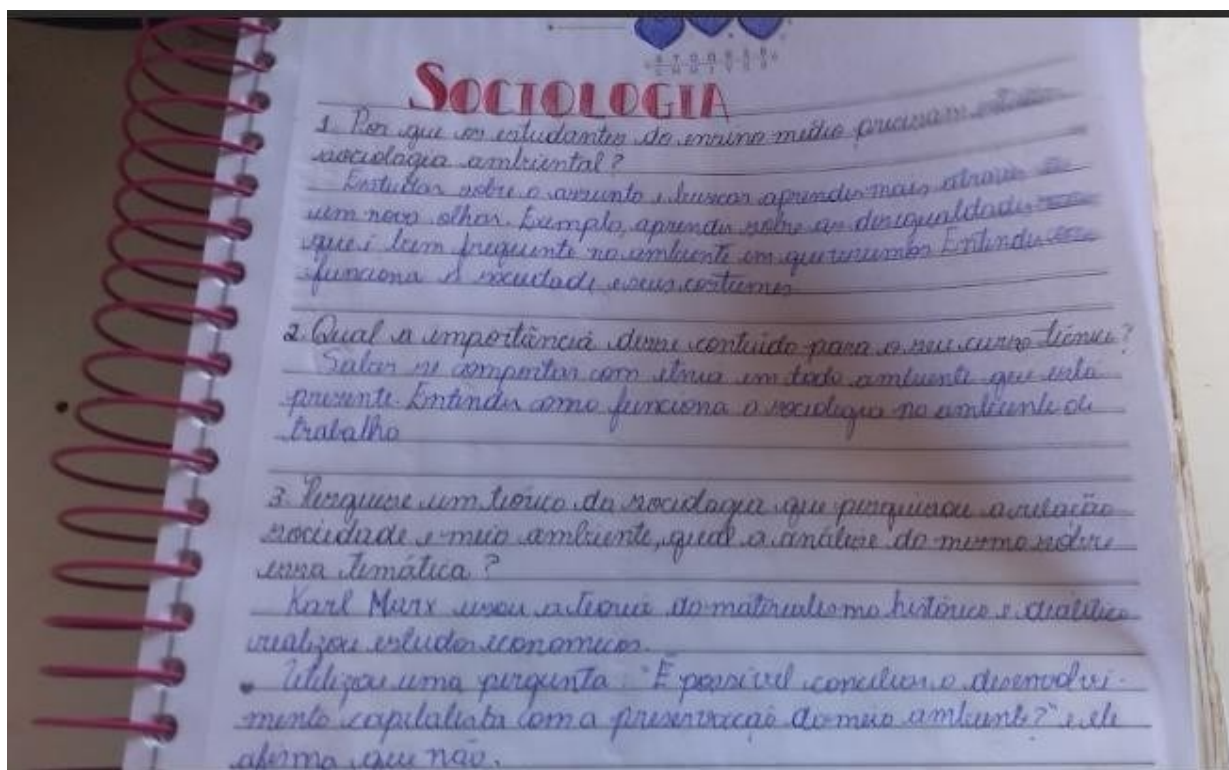 SOCIOLOGIA
1. Por que os estudantes do ensino médio precisam
sociologia ambiental?
Estudar sobre o assunto e buscar aprender mais através de
um novo olhar. Exemplo, aprender sobre as desigualdades
que é bem frequente no ambiente em que vivemos Entender como
funciona a sociedade e seus costumes
2. Qual a importância desse conteúdo para o seu curso técnico?
Saber se comportar com em todo ambiente que esta
presente. Entender como funciona a sociologia no ambiente de
trabalho
3. Pesquise um teórico da sociologia que pesquisou a relação
sociedade e meio ambiente, qual a análise do mesmo sobre
essa temática?
Karl Marx usou a teoria do materialismo histórico e dialético
realizou estudos economicos.
Utilizou uma pergunta: "É possivel conciliar o desenvolvi-
mento capitalista com a preservação do meio ambiente?" e ele
afirma que não.